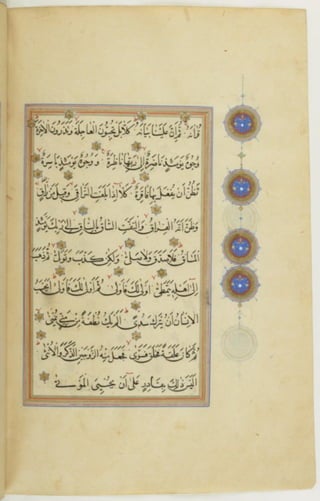 قرآنه ثم إن علينا بيانه كلا بل تحبون العاجلة وتذرون الآخرة
وجوه يومئذ ناضرة إلى ربها ناظرة ووجوه يومئذ باسرة
تظن أن يفعل بها فاقرة كلا إذا بلغت التراقي وقيل من راق
وظن أنه الفراق والتفت الساق بالساق إلى ربك يومئذ
المساق فلا صدق ولا صلى ولكن كذب وتولى ثم ذهب
إلى أهله يتمطى أولى لك فأولى ثم أولى لك فأولى أيحسب
الإنسان أن يترك سدى ألم يك نطفة من مني يمنى
ثم كان علقة فخلق فسوى فجعل منه الزوجين الذكر والأنثى
أليس ذلك بقادر على أن يحيي الموتى